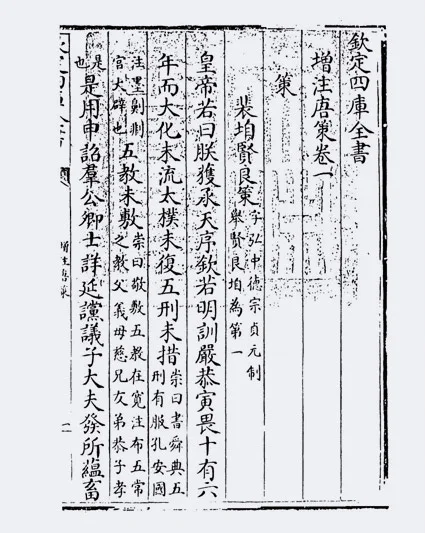 欽定四庫全書
增注唐策卷一
策
裴垍賢良策字弘中德宗貞元制舉賢良垍為第一
皇帝若曰朕獲承天序欽若明訓嚴恭寅畏十有六
年而大化未流太樸未復五刑未措崇曰書舜典五刑有服孔安國
注墨劓剕官大辟也五教未敷崇曰敬敷五教在寛注布五常之教父義母慈兄友弟恭子孝
是也是用申詔羣公卿士詳延讜議子大夫發所蘊畜
增注唐策